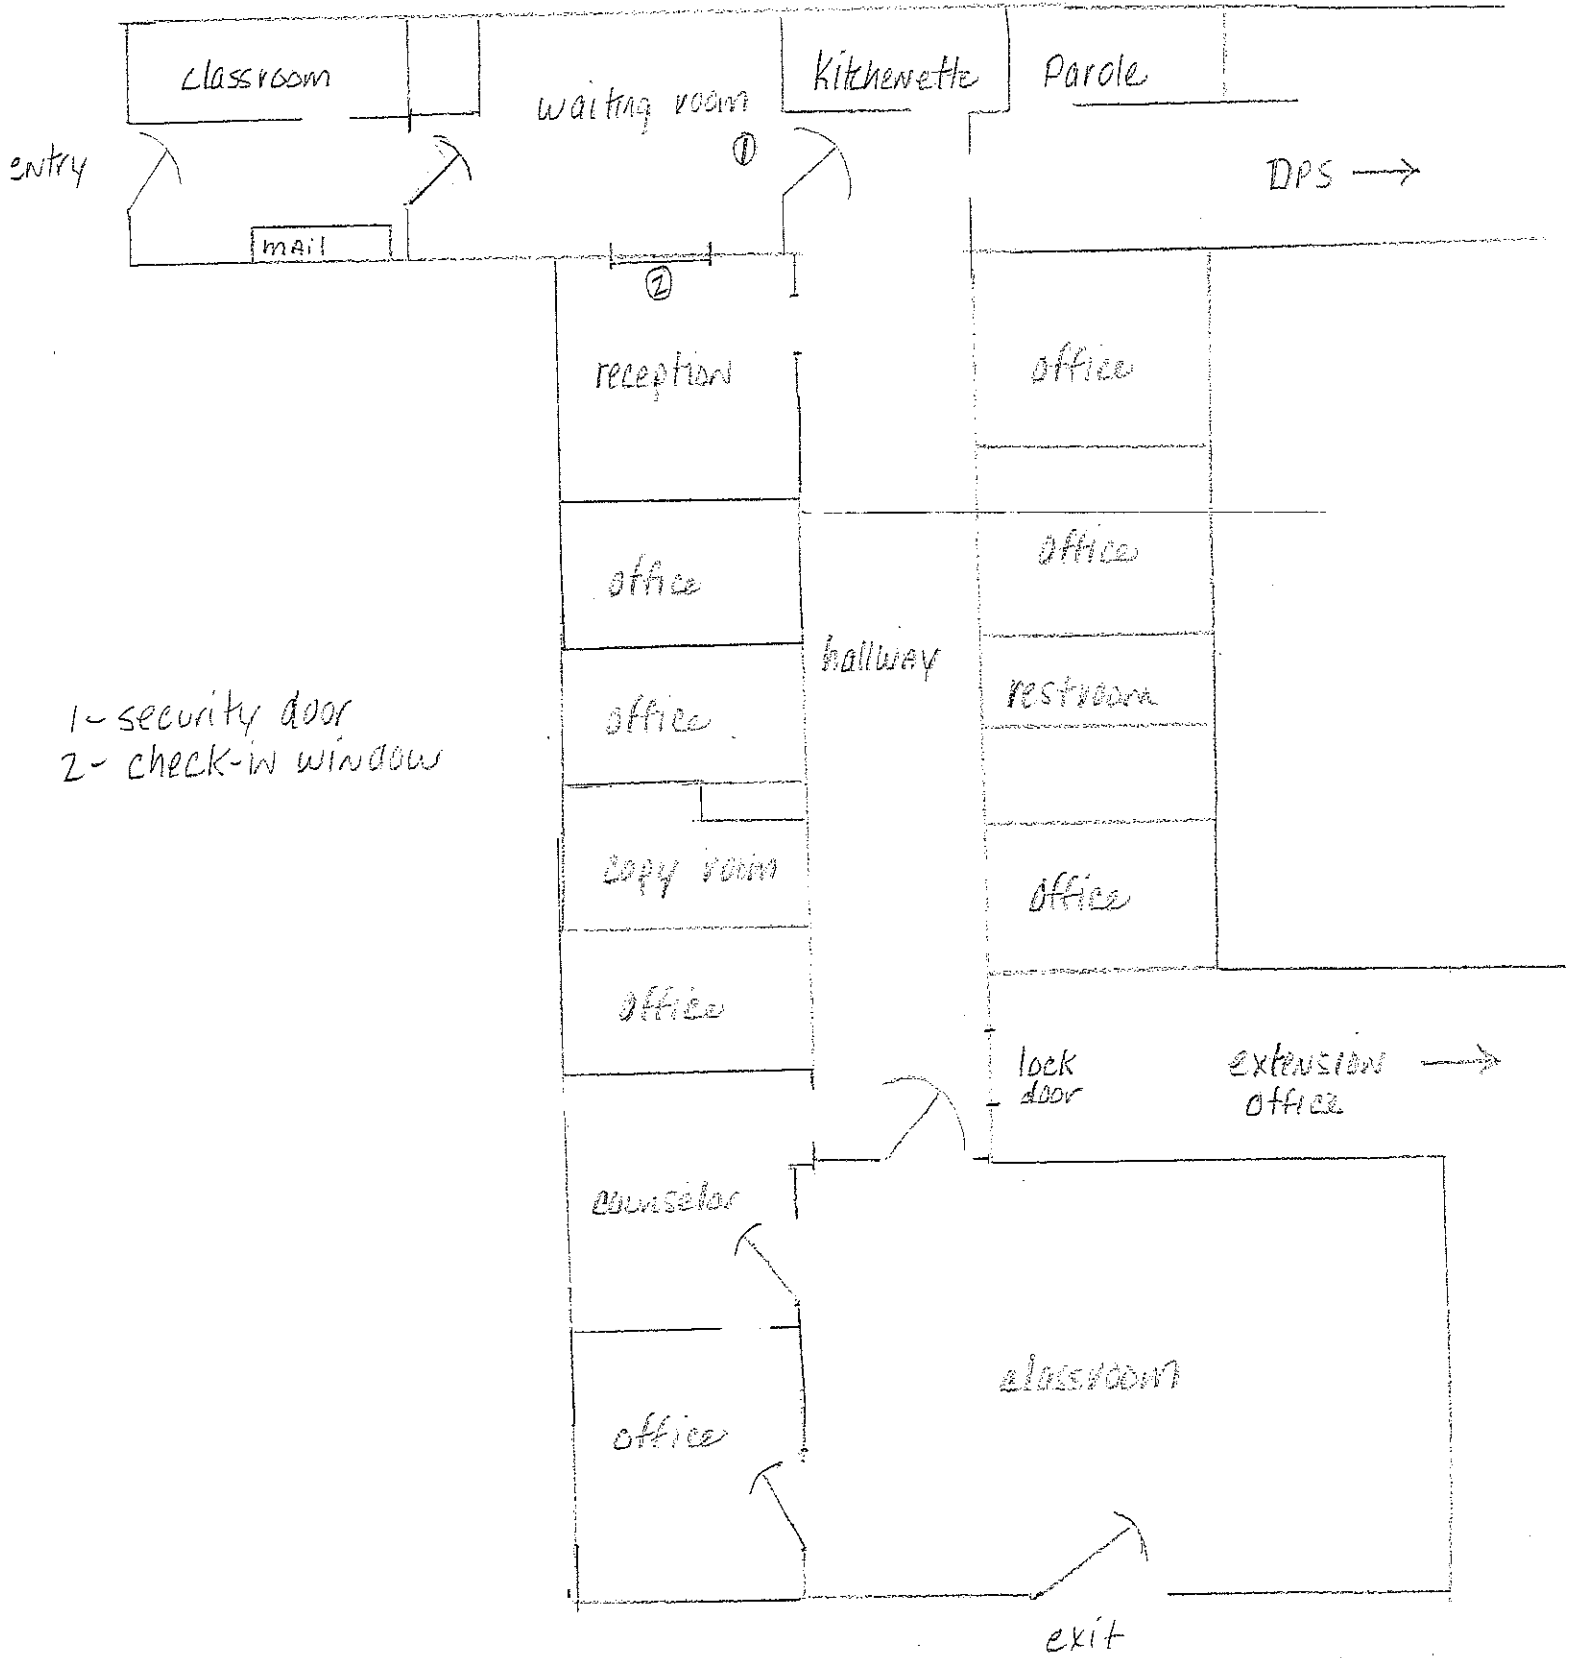 classroom
waiting room
Kitchenette
Parole
entry
1
DPS
mail
2
reception
office
office
office
hallway
office
restroom
1- security door
2- check-in window
copy room
office
office
lock
door
extension
office
counselor
classroom
office
exit